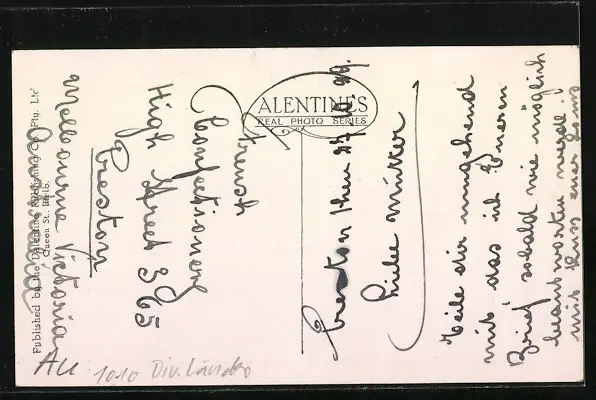 Preston then 27. 2. 29.
Liebe Mutter
Teile dir umgehend
mit das ich Eueren
Brief, sobald wie möglich
beantworten werde.
mit Kuss euer Hans
French
Confectionery
High Street 365
Preston
Melbourne Victoria
Australia
VALENTINES
REAL PHOTO SERIES
Published by the Valentine Publishing Co. Pty. Ltd
Queen St. Melb.
Au 1010 Div. Länder